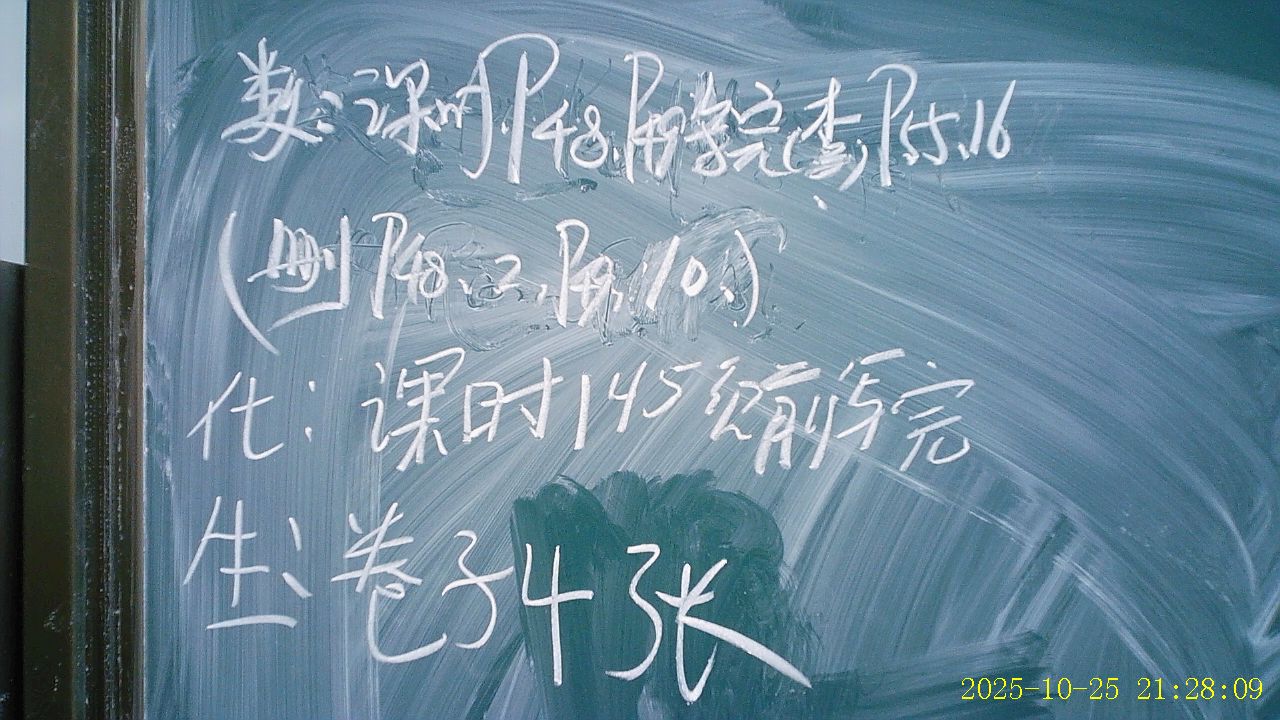 数:课时P48、P49写完(查),P55、16
(删P48、2、P49、10、)
化:课时145页前写完
生:卷子4张
2025-10-25 21:28:09